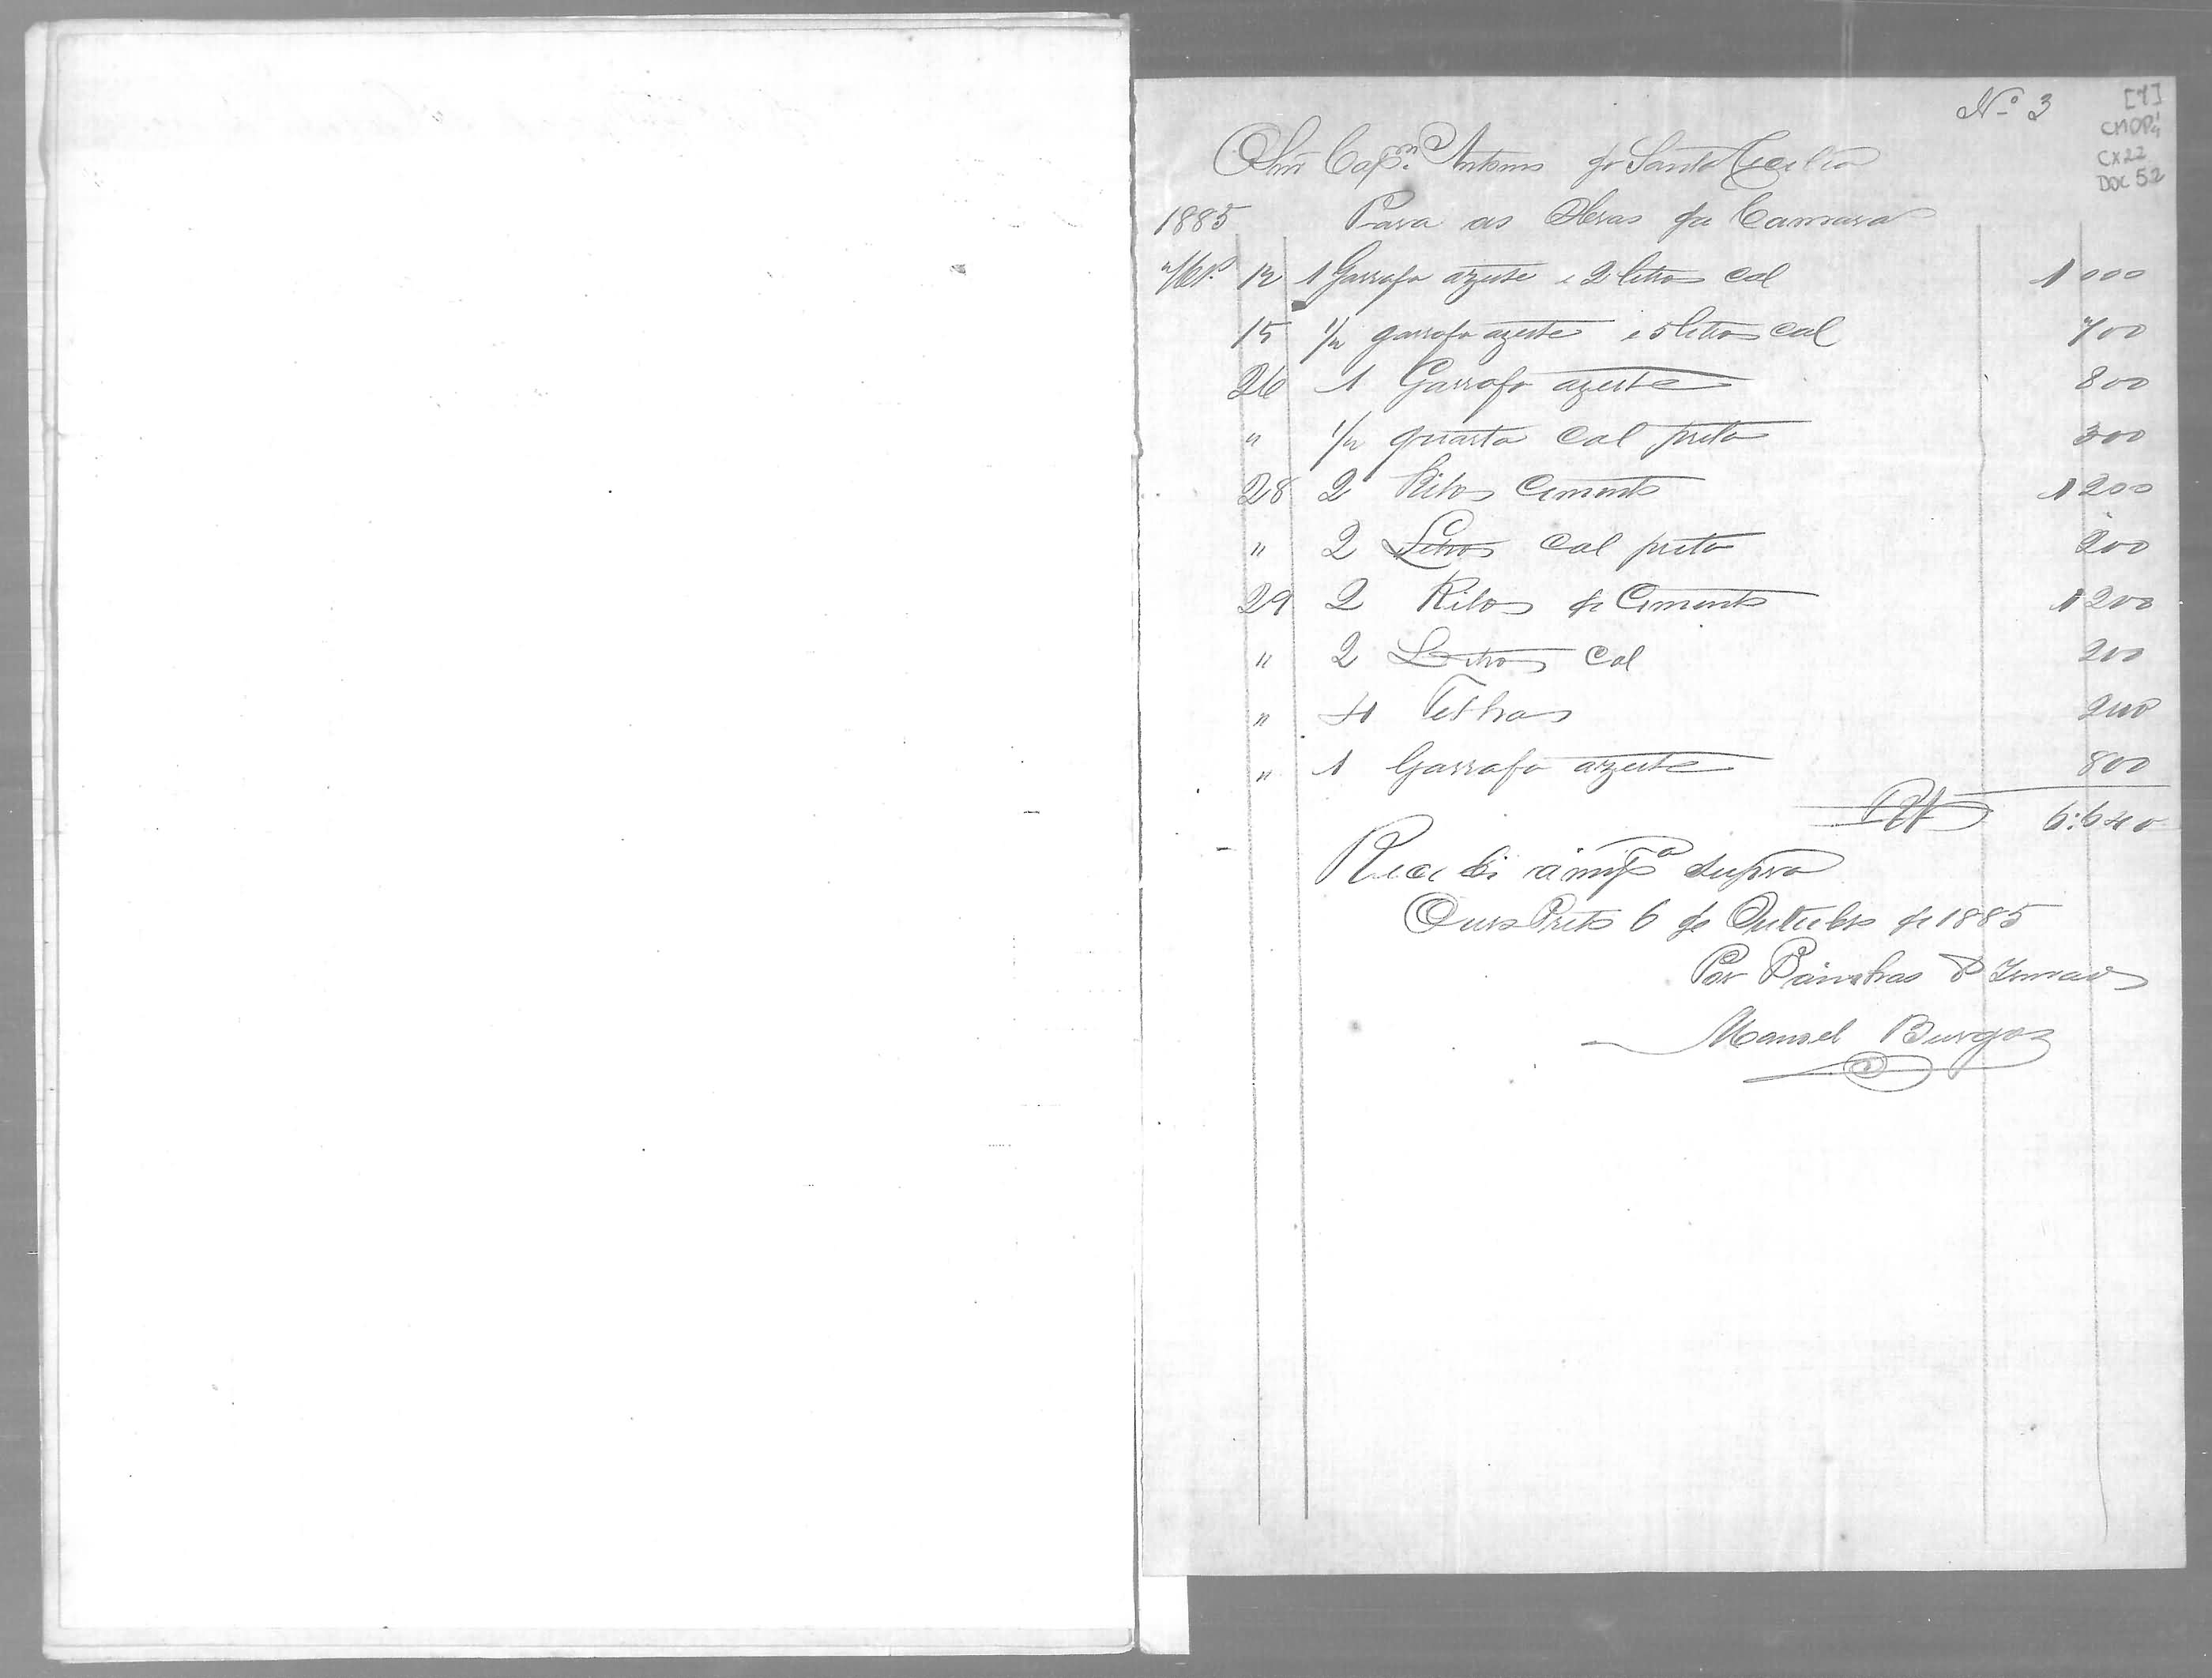 Nº 3
[1]
CMOP
CX22
DOC 52
O Snr Capm Antonio de Santa Cecilia
1885 Para as Obras da Camara
7bro 12 1 Garrafa azeite e 2 litros cal 1000
15 1/2 garrafa azeite e 5 litros cal 700
26 1 Garrafa azeite 800
" 1/2 quarta cal preta 300
28 2 Kilos Cimento 1200
" 2 Litros cal preta 200
29 2 Kilos de Cimento 1200
" 2 Litros cal 200
" 4 Telhas 240
" 1 Garrafa azeite 800
Rs 6:640
Recebi a impª supra
Ouro Preto 6 de Outubro de 1885
Por & Irmaos
Manoel Burgos